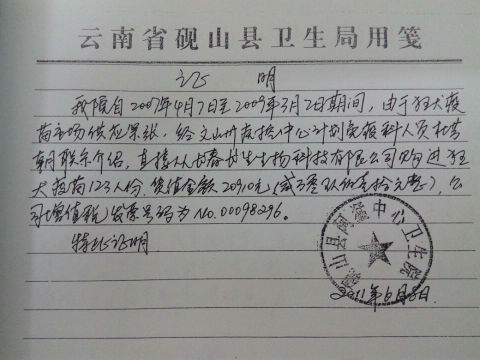 云南省砚山县卫生局用笺
证 明
我院自2007年4月7日至2009年3月2日期间，由于狂犬疫
苗市场供应紧张，经文山州疫控中心计划免疫科人员杜
朝联系介绍，直接从长春长生生物科技有限公司购进狂
犬疫苗123人份，货值金额20910元（贰万零玖佰壹拾元整），公
司增值税发票号码为No.00098296。
特此证明
砚山县阿 中心卫生院
2011年6月8日.